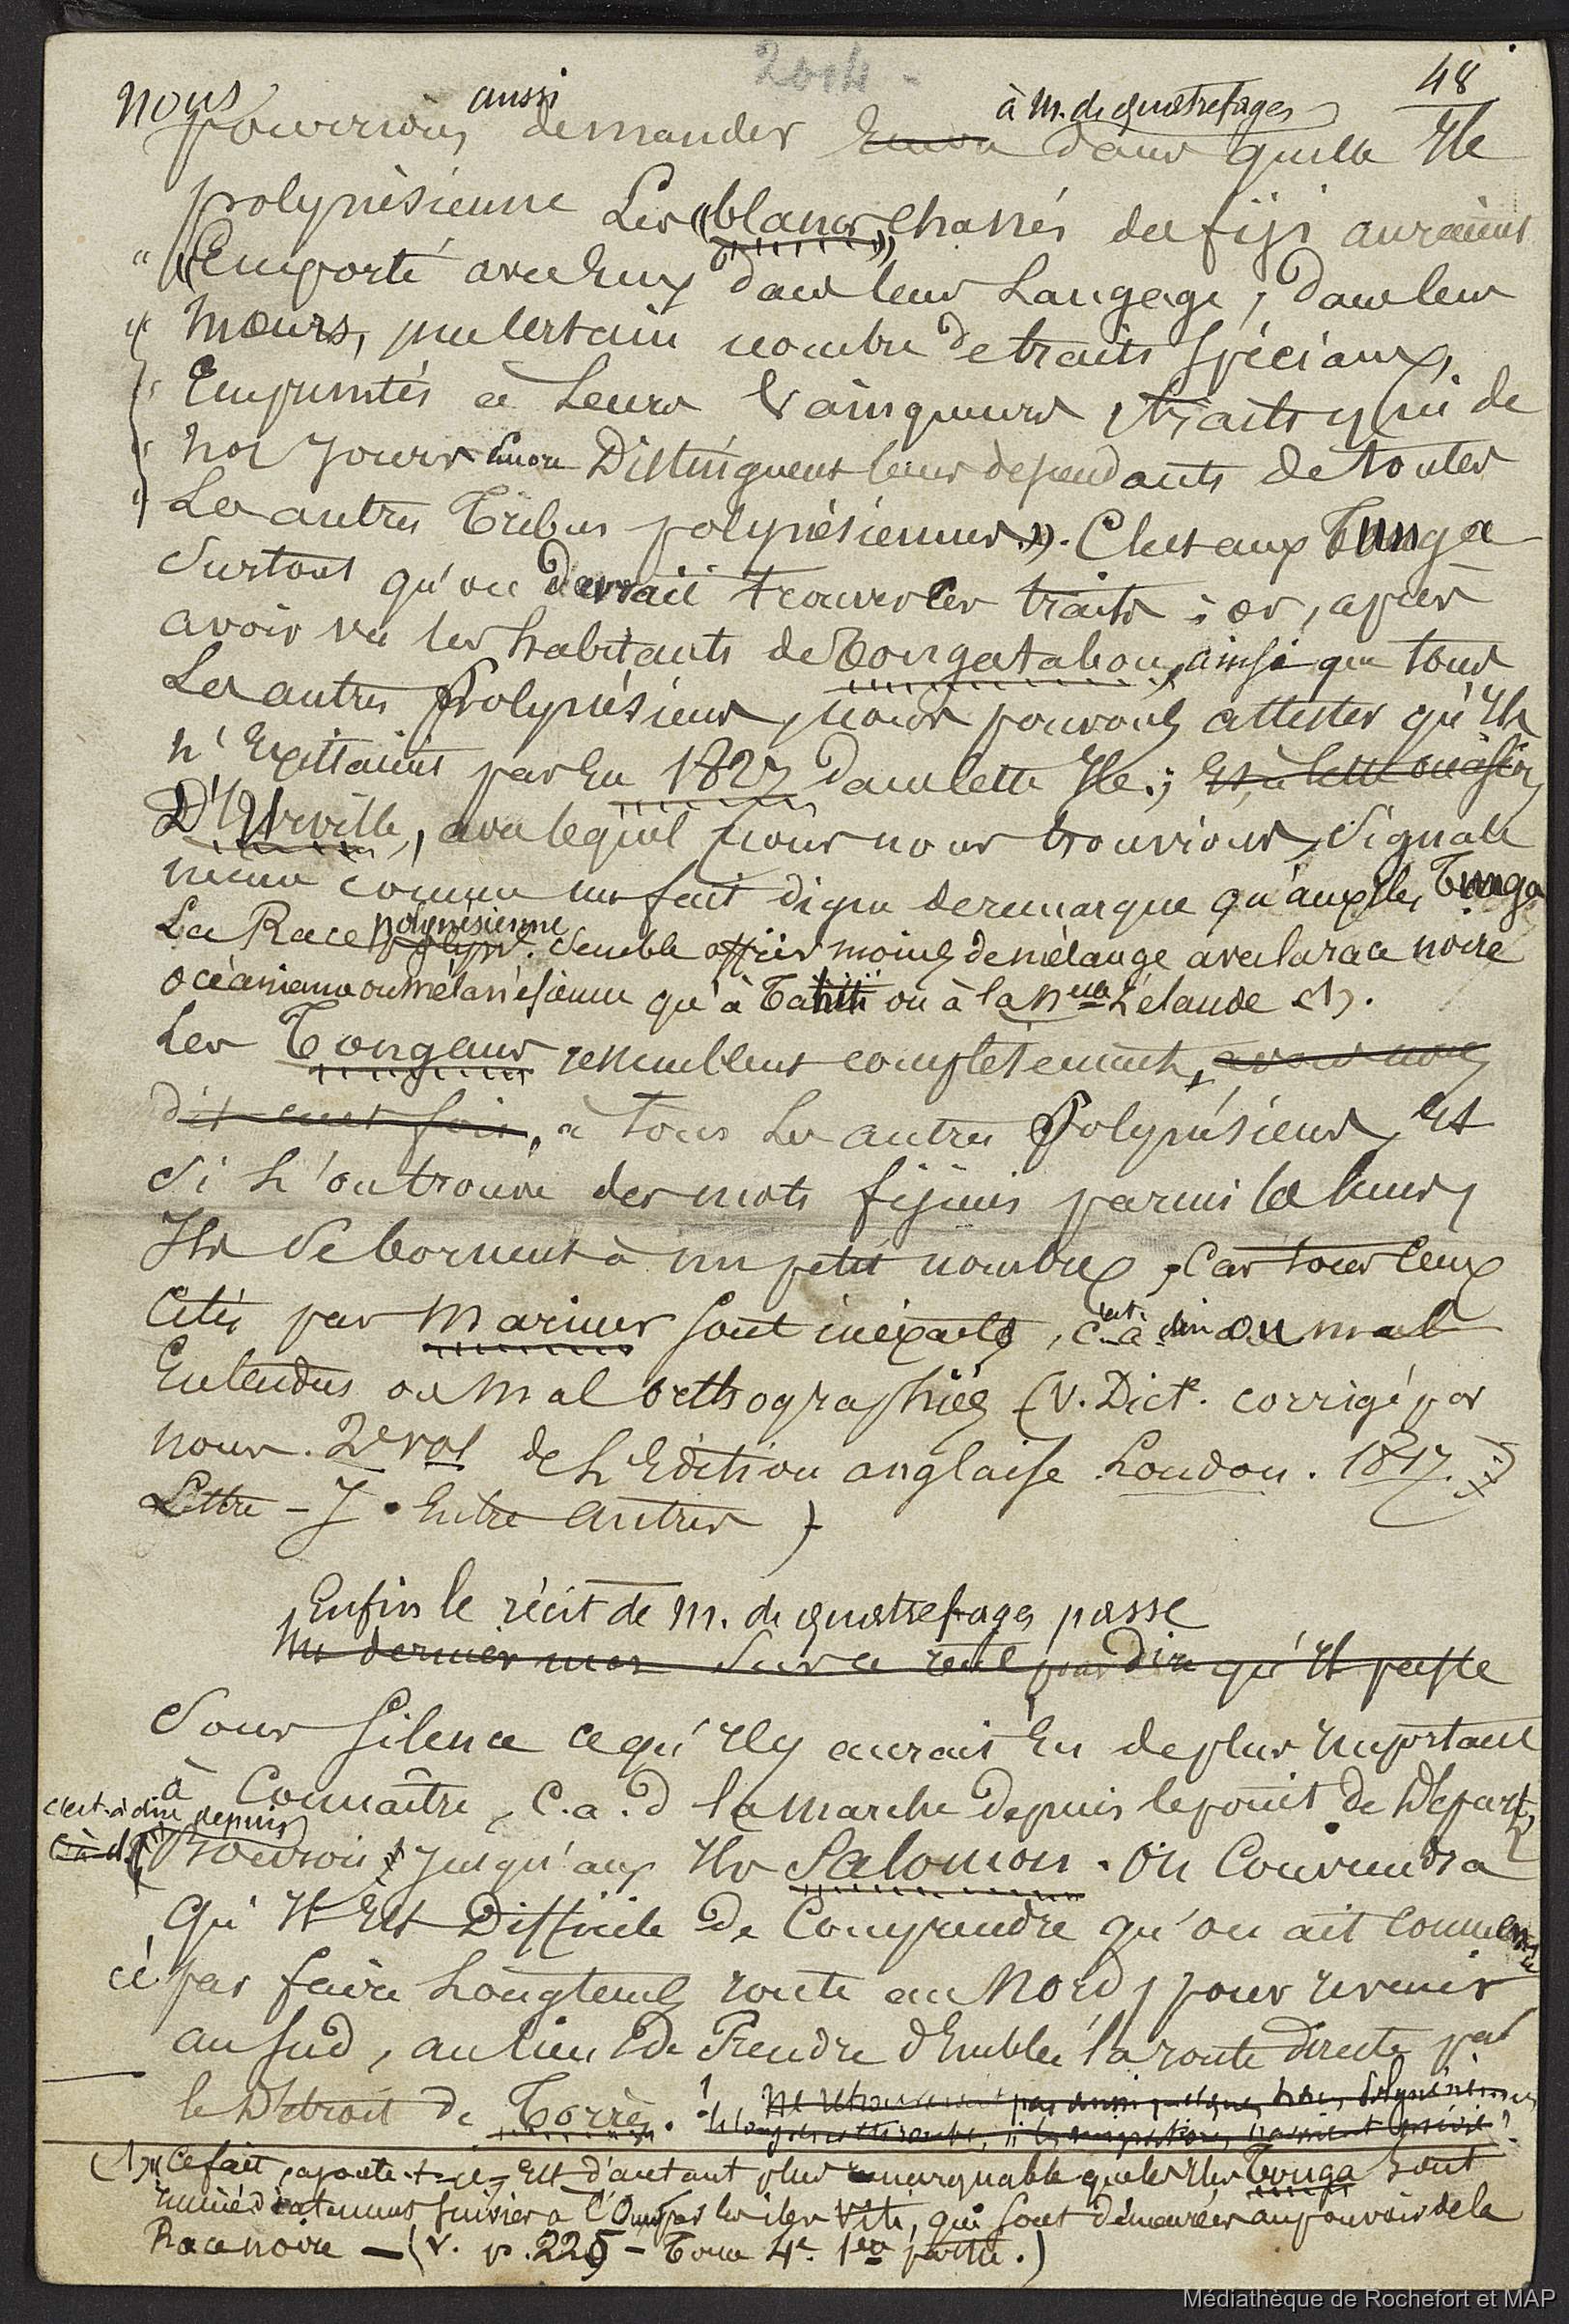 2014 -
48
nous pourrions aussi demander à M. de Quatrefages dans quelle Ile
polynésienne Les « blancs » chassés des fiji auraient
" « Emporté avec Eux dans leur Langage, dans leur
" mœurs, un certain nombre de traits spéciaux,
" Empruntés à Leurs Vainqueurs, traits qui de
" nos jours encore Distinguent leurs descendants de toutes
" Les autres Tribus polynésiennes ». C'est aux Tunga
Surtout qu'on devrait trouver ces traits ; or, après
avoir vu les habitants de Tongatabou, ainsi que tous
Les autres Polynésiens, nous pouvons attester qu'Ils
n'Existaient pas En 1827 dans cette Ile ; Et à cette occasion
D'Urville, avec lequel nous nous trouvions, Signale
même comme un fait digne de remarque qu'aux Iles Tunga
La Race polynésienne semble offrir moins de mélange avec la race noire
océanienne ou mélanésienne qu'à Tahiti ou à la Nelle Zélande (1).
Les Tongans ressemblent complètement, avons nous
dit cent fois, à tous Les autres Polynésiens, Et
Si L'on trouve des mots fijiens parmi les leurs,
Ils se bornent à un petit nombre, Car tous Ceux
Cités par Mariner sont inéxacts, c'est-à-dire ou mal
Entendus ou mal orthographiés (V. Dictre. corrigé par
nous. 2e vol de L'Edition anglaise London. 1817.)
Lettre - J. Entre autres)
Enfin le récit de M. de Quatrefages passe
Un dernier mot Sur ce récit pour Dire qu'Il passe
Sous silence ce qu'Il y aurait Eu de plus Important
à Connaître, C.a.d la marche depuis le point de Départ,
c'est-à-dire depuis
C-à-d. Bouron, jusqu'aux Iles Salomon. On Conviendra
Qu'Il Est Difficile de Comprendre qu'on ait commen
cé par faire Longtems route au Nord, pour revenir
au Sud, au lieu de Prendre d'Emblée la route directe par
le Détroit de Torrès.
(1) « Ce fait, ajoute-t-il, Est d'autant plus remarquable que les Iles Tonga sont
immédiatement suivies à l'Ouest par les iles Viti, qui sont demeurées au pouvoir de la
Race noire — (V. p. 225 - Tome 4e. 1ère partie.)
Médiathèque de Rochefort et MAP